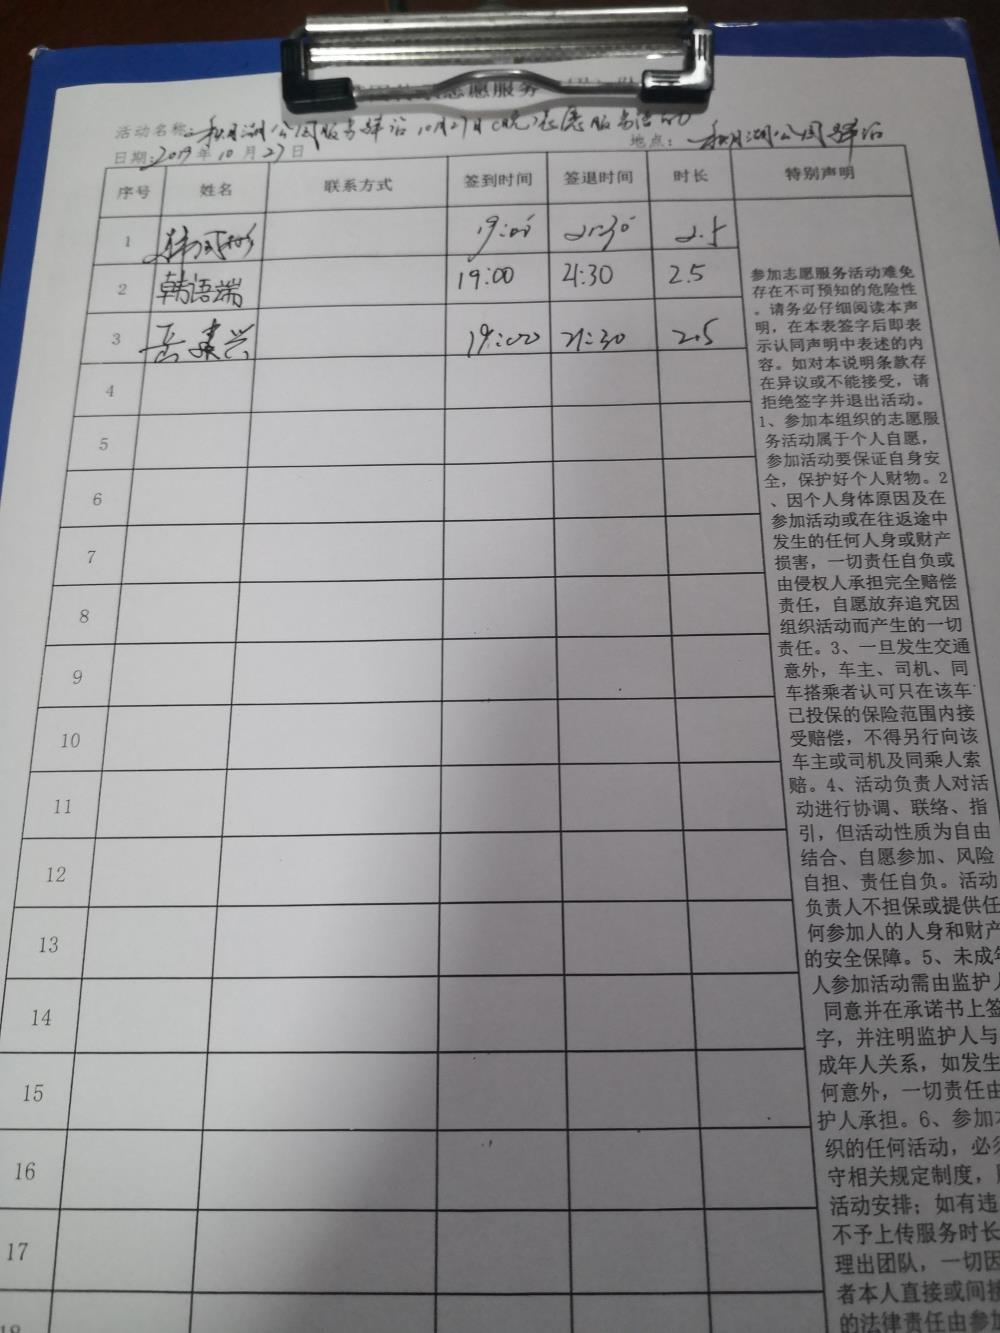 志愿服务
活动名称: 秋月湖公园服务驿站10月27日(晚)志愿服务活动
日期: 2019年10月27日 地点: 秋月湖公园驿站
序号 姓名 联系方式 签到时间 签退时间 时长 特别声明
1 19:00 21:30 2.5
2 韩语端 19:00 21:30 2.5
3 岳建兴 19:00 21:30 2.5
4
5
6
7
8
9
10
11
12
13
14
15
16
17
18
参加志愿服务活动难免
存在不可预知的危险性
。请务必仔细阅读本声
明，在本表签字后即表
示认同声明中表述的内
容。如对本说明条款存
在异议或不能接受，请
拒绝签字并退出活动。
1、参加本组织的志愿服
务活动属于个人自愿，
参加活动要保证自身安
全，保护好个人财物。2
、因个人身体原因及在
参加活动或在往返途中
发生的任何人身或财产
损害，一切责任自负或
由侵权人承担完全赔偿
责任，自愿放弃追究因
组织活动而产生的一切
责任。3、一旦发生交通
意外，车主、司机、同
车搭乘者认可只在该车
已投保的保险范围内接
受赔偿，不得另行向该
车主或司机及同乘人索
赔。4、活动负责人对活
动进行协调、联络、指
引，但活动性质为自由
结合、自愿参加、风险
自担、责任自负。活动
负责人不担保或提供任
何参加人的人身和财产
的安全保障。5、未成年
人参加活动需由监护人
同意并在承诺书上签
字，并注明监护人与
成年人关系，如发生
何意外，一切责任由
护人承担。6、参加本
织的任何活动，必须
守相关规定制度，
活动安排；如有违
不予上传服务时长
理出团队，一切因
者本人直接或间接
的法律责任由参加